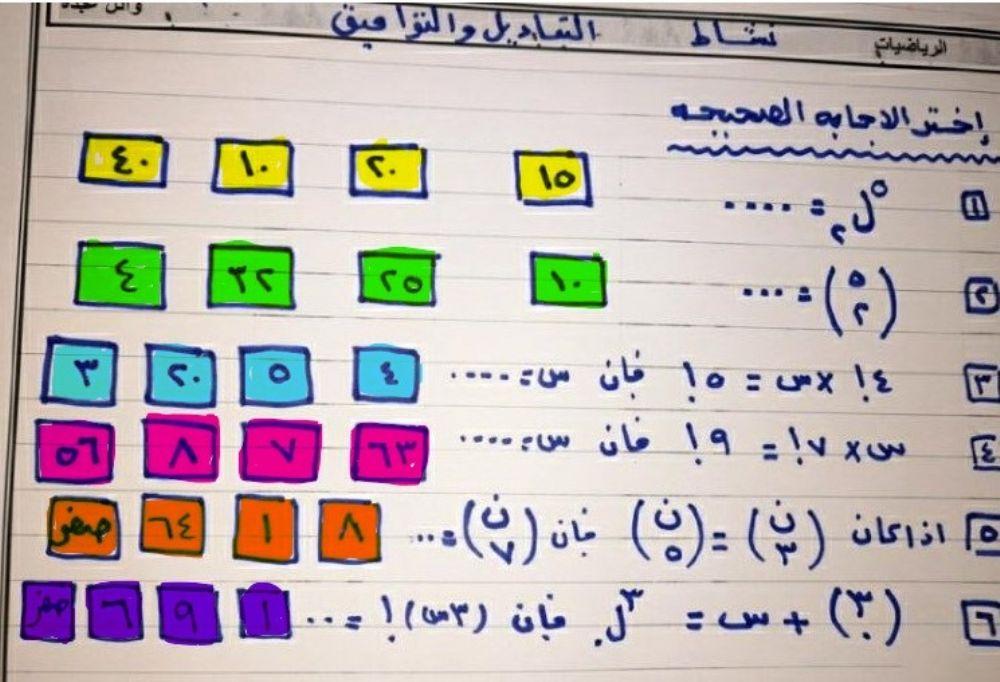 الرياضيات نشاط التباديل والتوافيق وائل عبده
إختر الاجابه الصحيحه
١ ⁵ل₂ = .... ١٥ ٢٠ ١٠ ٤٠
٢ (٥ ٢) = .... ١٠ ٢٥ ٣٢ ٤
٣ ٤! × س = ٥! فان س = .... ٤ ٥ ٢٠ ٣
٤ س × ٧! = ٩! فان س = .... ٦٣ ٧ ٨ ٥٦
٥ اذا كان (ن ٣) = (ن ٥) فان (ن ٧) = ... ٨ ١ ٦٤ صفر
٦ (٣ ٠) + س = ³ل₀ فان (٣س)! = ... ١ ٩ ٦ صفر